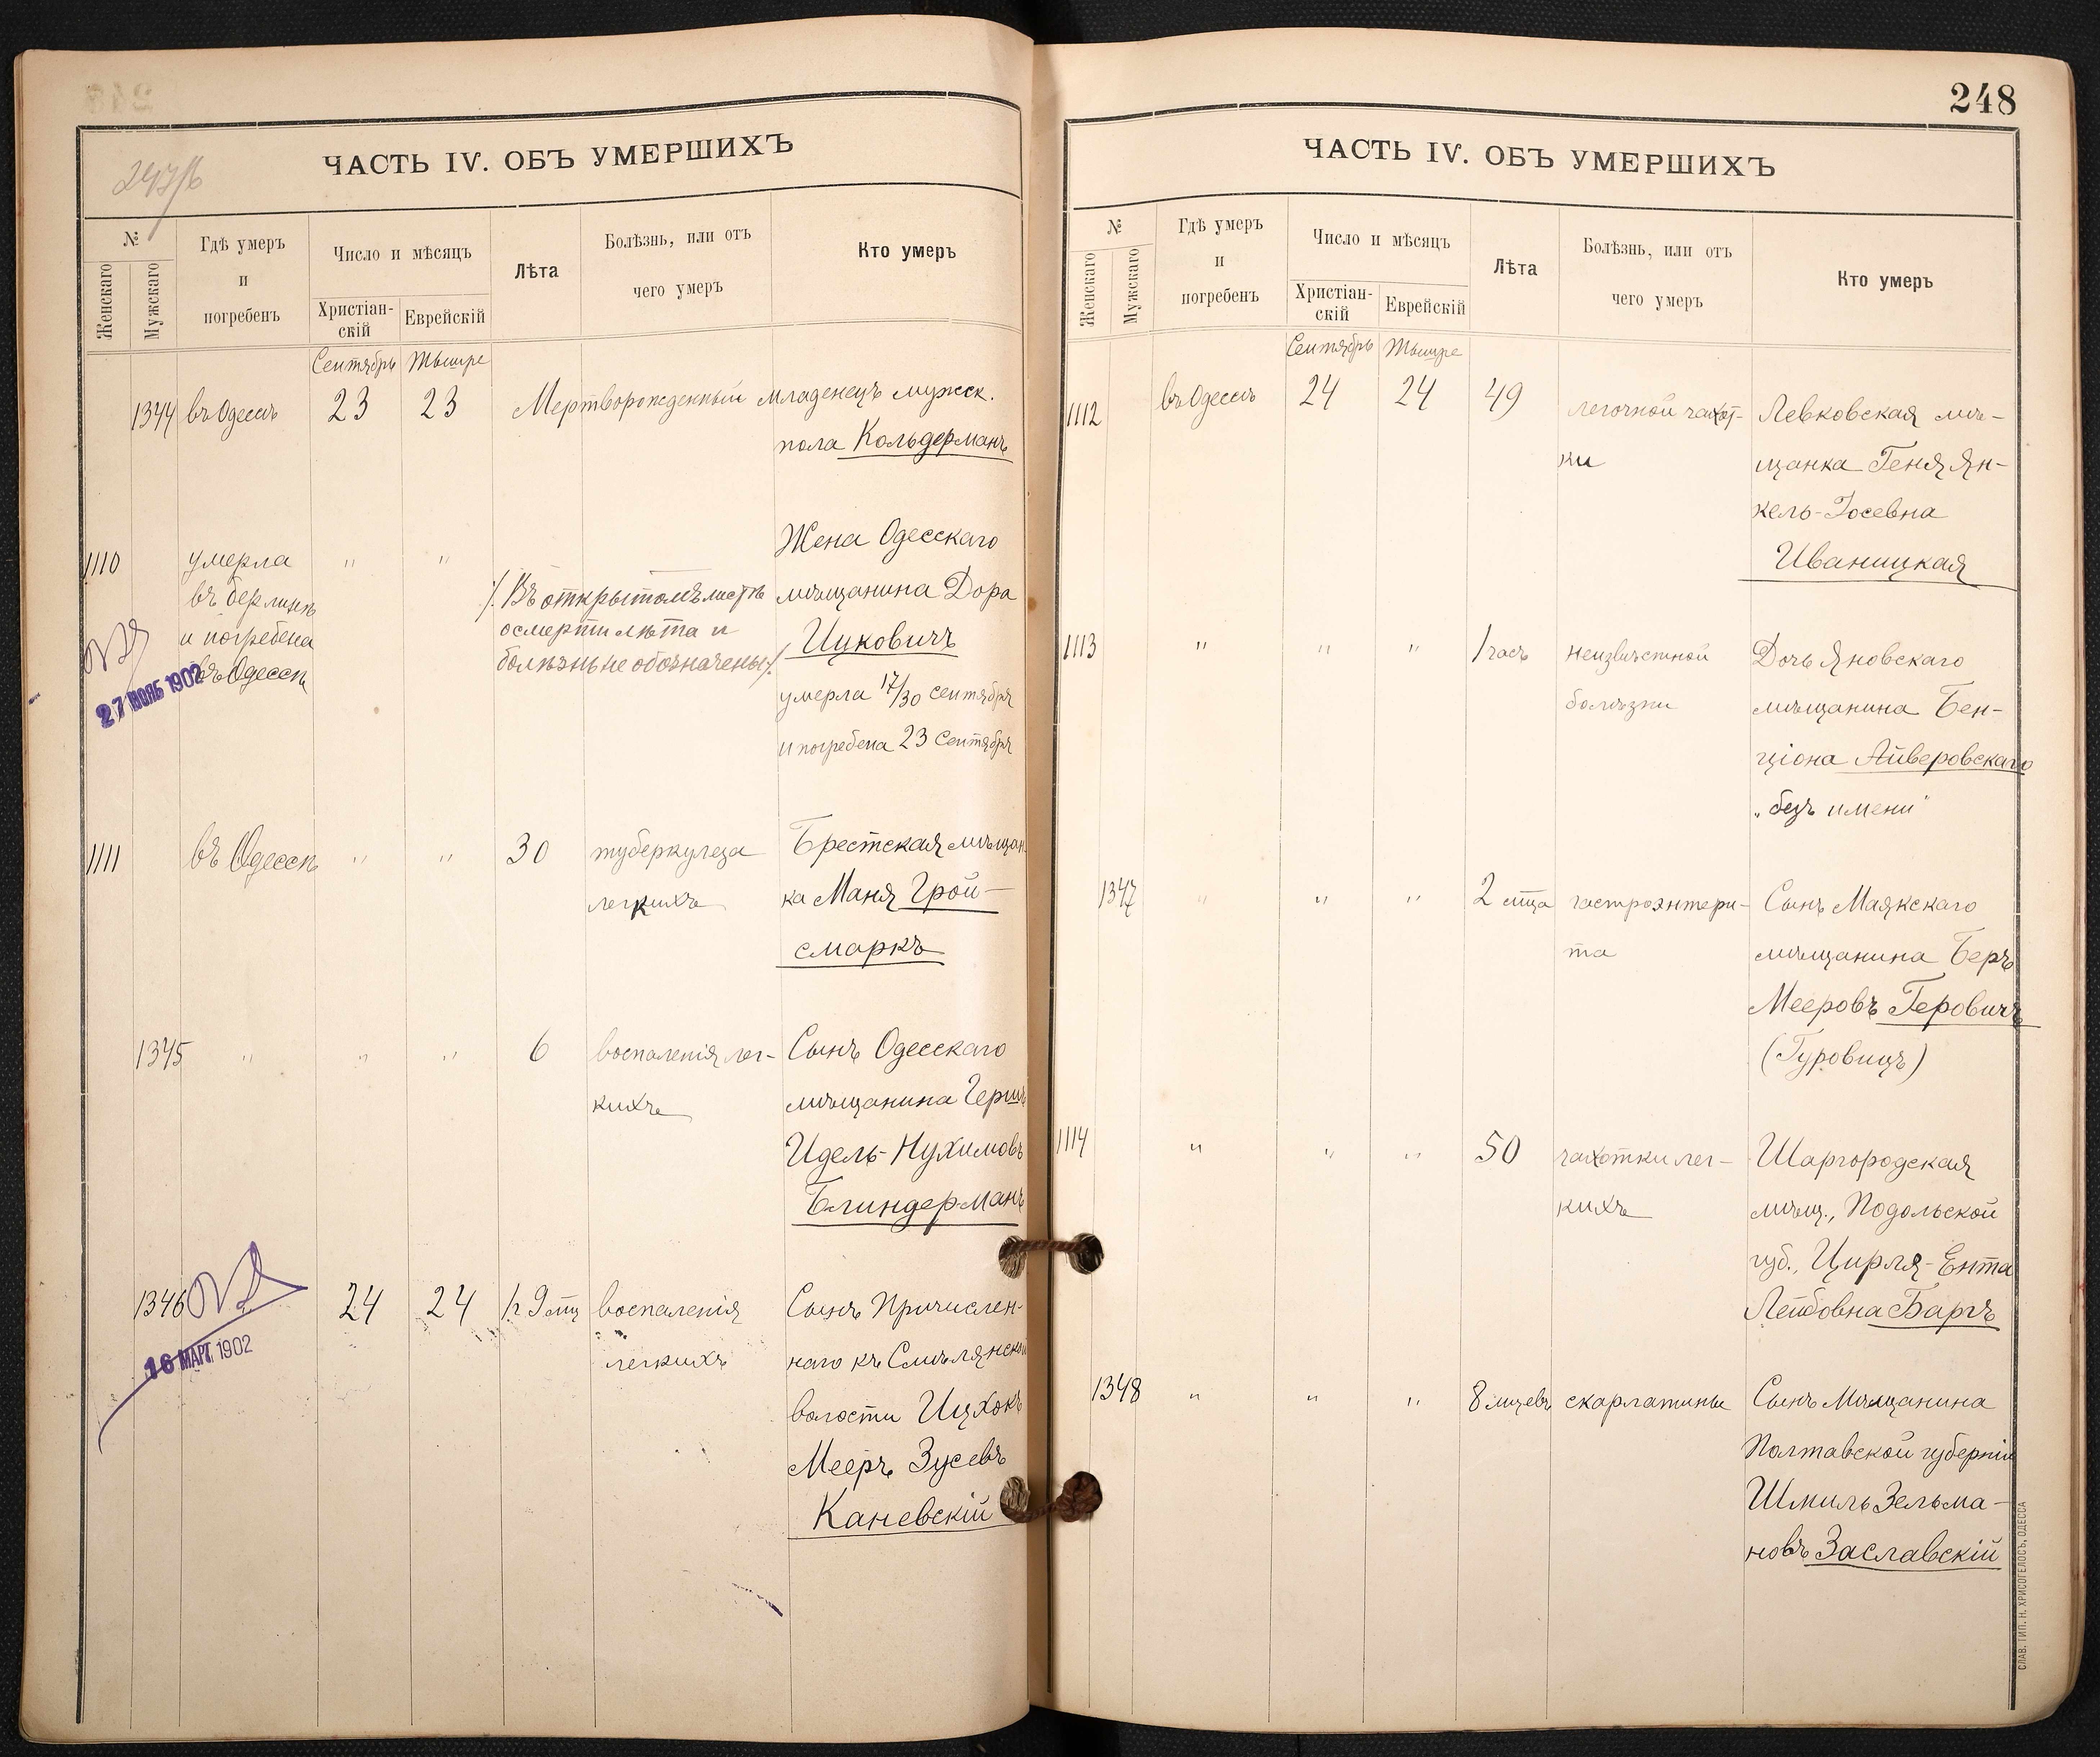 247/б
ЧАСТЬ IV. ОБЪ УМЕРШИХЪ
№
Женскаго
Мужскаго
Гдѣ умеръ
и
погребенъ
Число и мѣсяцъ
Христіан-
скій
Еврейскій
Лѣта
Болѣзнь, или отъ
чего умеръ
Кто умеръ
Сентябрь Тишре
1344 въ Одессѣ 23 23 Мертворожденный младенецъ мужск.
пола Кольдерманъ
1110 умерла " " Жена Одесскаго
въ Берлинѣ ./. Въ открытомъ листѣ мѣщанина Дора
и погребена о смерти лѣта и Ицковичъ
въ Одессѣ болѣзнь не обозначены ./.
27 НОЯБ 1902
умерла 17/30 Сентября
и погребена 23 Сентября
1111 въ Одессѣ " " 30 туберкулеза Брестская мѣщан-
легкихъ ка Маня Грой-
смаркъ
1345 " " " 6 воспаленія лег- Сынъ Одесскаго
кихъ мѣщанина Гершъ
Идель-Нухимовъ
Блиндерманъ
1346 24 24 1 г. 9 мц воспаленія Сынъ Причислен-
легкихъ наго къ Смѣлянской
16 МАРТ. 1902
волости Ицхокъ
Мееръ Зусевъ
Каневскій
248
ЧАСТЬ IV. ОБЪ УМЕРШИХЪ
№
Женскаго
Мужскаго
Гдѣ умеръ
и
погребенъ
Число и мѣсяцъ
Христіан-
скій
Еврейскій
Лѣта
Болѣзнь, или отъ
чего умеръ
Кто умеръ
Сентябрь Тишре
1112 въ Одессѣ 24 24 49 легочной чахот- Левковская мѣ-
ки щанка Геня Ян-
кель-Іосевна
Иваницкая
1113 " " " 1 часъ неизвѣстной Дочь Яновскаго
болѣзни мѣщанина Бен-
ціона Айверовскаго
„безъ имени"
1347 " " " 2 мѣца гастроэнтери- Сынъ Маякскаго
та мѣщанина Беръ
Мееровъ Геровичъ
(Гуровицъ)
1114 " " " 50 чахотки лег- Шаргородская
кихъ мѣщ., Подольской
губ., Цирля-Ента
Лейбовна Баргъ
1348 " " " 8 мцевъ скарлатины Сынъ Мѣщанина
Полтавской губерніи
Шмиль Зельма-
новъ Заславскій
СЛАВ. ТИП. Н. ХРИСОГЕЛОСЪ, ОДЕССА